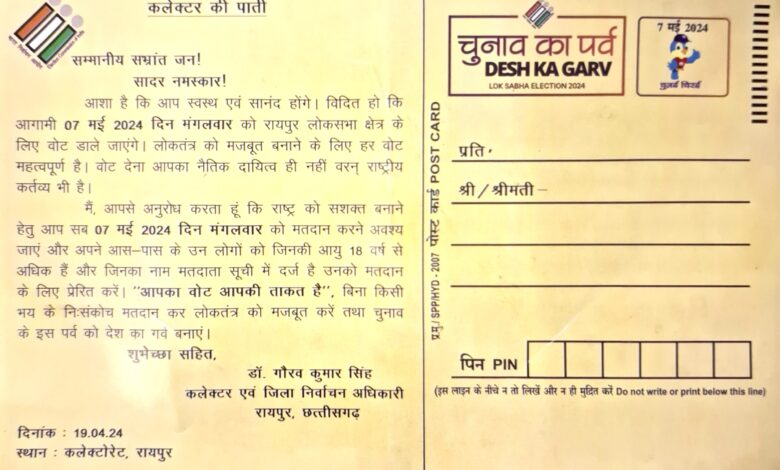 कलेक्टर की पाती
सम्मानीय सम्भ्रांत जन!
सादर नमस्कार!
आशा है कि आप स्वस्थ एवं सानंद होंगे। विदित हो कि
आगामी 07 मई 2024 दिन मंगलवार को रायपुर लोकसभा क्षेत्र के
लिए वोट डाले जाएंगे। लोकतंत्र को मजबूत बनाने के लिए हर वोट
महत्वपूर्ण है। वोट देना आपका नैतिक दायित्व ही नहीं वरन् राष्ट्रीय
कर्तव्य भी है।
मैं, आपसे अनुरोध करता हूं कि राष्ट्र को सशक्त बनाने
हेतु आप सब 07 मई 2024 दिन मंगलवार को मतदान करने अवश्य
जाएं और अपने आस-पास के उन लोगों को जिनकी आयु 18 वर्ष से
अधिक हैं और जिनका नाम मतदाता सूची में दर्ज है उनको मतदान
के लिए प्रेरित करें। "आपका वोट आपकी ताकत है", बिना किसी
भय के निःसंकोच मतदान कर लोकतंत्र को मजबूत करें तथा चुनाव
के इस पर्व को देश का गर्व बनाएं।
शुभेच्छा सहित,
डॉ. गौरव कुमार सिंह
कलेक्टर एवं जिला निर्वाचन अधिकारी
रायपुर, छत्तीसगढ़
दिनांक : 19.04.24
स्थान : कलेक्टोरेट, रायपुर
प्र.मु./ SPP/HYD - 2007 पोस्ट कार्ड POST CARD
चुनाव का पर्व
DESH KA GARV
LOK SABHA ELECTION 2024
7 मई 2024
प्रति,
श्री / श्रीमती -
पिन PIN
(इस लाइन के नीचे न तो लिखें और न ही मुद्रित करें Do not write or print below this line)